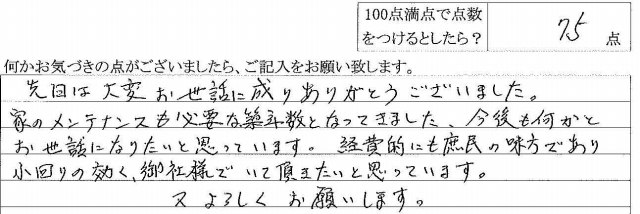 100点満点で点数
をつけるとしたら? 75 点
何かお気づきの点がございましたら、ご記入をお願い致します。
先日は大変お世話に成りありがとうございました。
家のメンテナンスも必要な築年数となってきました、今後も何かと
お世話になりたいと思っています。 経費的にも庶民の味方であり
小回りの効く、御社様でいて頂きたいと思っています。
又よろしくお願いします。